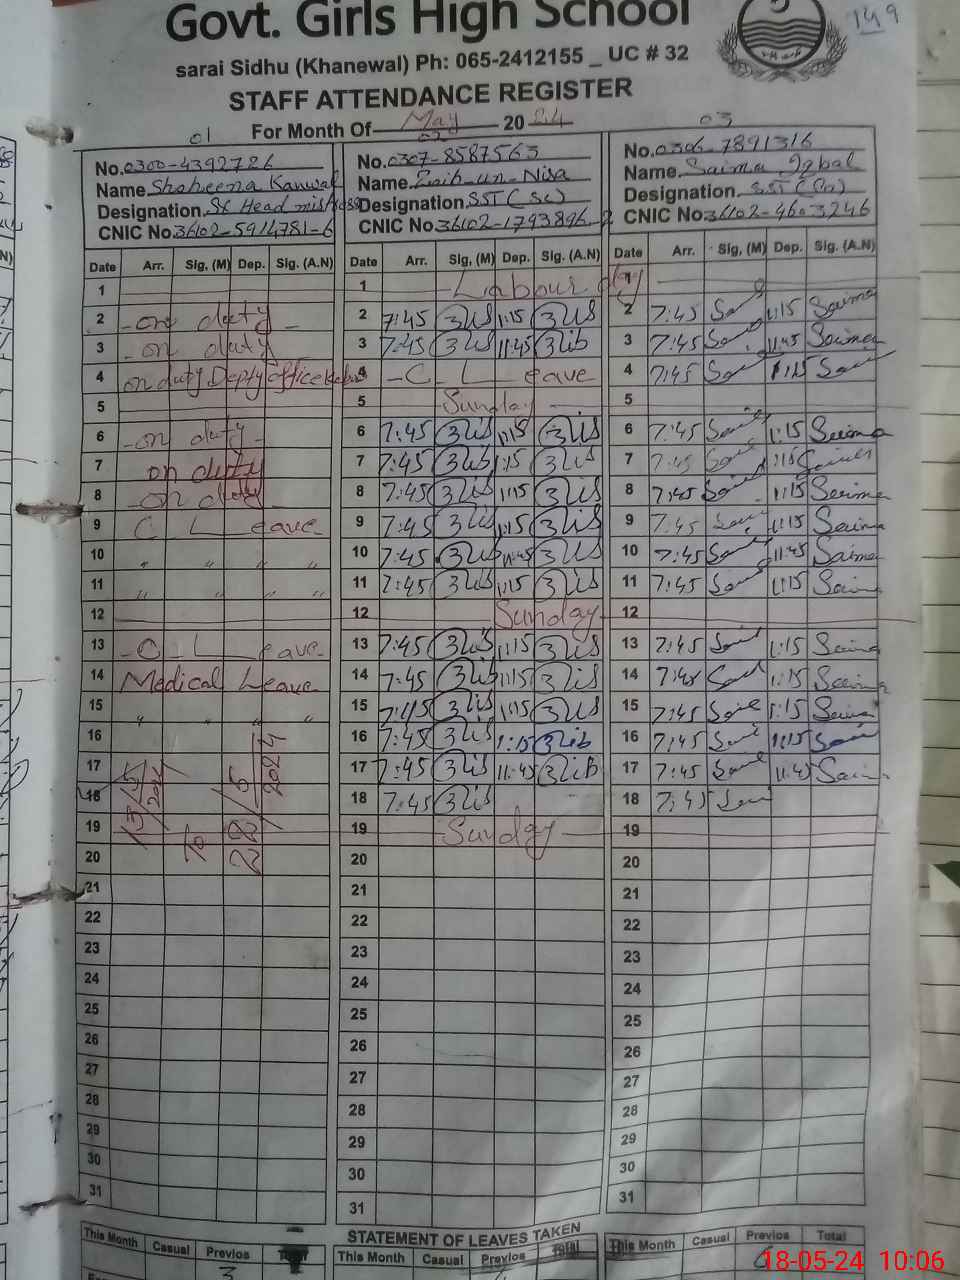 Govt. Girls High School
149
sarai Sidhu (Khanewal) Ph: 065-2412155 _ UC # 32
STAFF ATTENDANCE REGISTER
For Month Of May 2024
01 02 03
No. 0300-4392726
Name Shaheena Kanwal
Designation. Sr Head mistress
CNIC No 36102-5914781-6
Date Arr. Sig, (M) Dep. Sig. (A.N)
1
2 - on duty -
3 - on duty
4 on duty Depty office
5
6 - on duty -
7 on duty
8 - on duty
9 C Leave
10 " " " "
11 " " " "
12
13 - C. Leave -
14 Medical Leave
15 " " " "
16
17
18
19
20
13/5/2024 To 28/5/2024
21
22
23
24
25
26
27
28
29
30
31
No. 0307-8587563
Name Zaib-un-Nisa
Designation. SST (Sc)
CNIC No 36102-1793896-2
Date Arr. Sig, (M) Dep. Sig. (A.N)
1 Labour day
2 7:45 1:15
3 7:45 11:45 Zib
4 - C. Leave
5 Sunday
6 7:45 1:15
7 7:45 1:15
8 7:45 1:15
9 7:45 1:15
10 7:45 11:45
11 7:45 1:15
12 Sunday
13 7:45 1:15
14 7:45 1:15
15 7:45 1:15
16 7:45 1:15 Zib
17 7:45 11:45 Zib
18 7:45
19 Sunday
20
21
22
23
24
25
26
27
28
29
30
31
No. 0306-7891316
Name. Saima Iqbal
Designation. SST (Sc)
CNIC No 36102-4603246
Date Arr. Sig, (M) Dep. Sig. (A.N)
2 7:45 1:15 Saima
3 7:45 11:45 Saima
4 7:45 1:15
5
6 7:45 1:15 Saima
7 7:45 1:15 Saima
8 7:45 1:15 Saima
9 7:45 1:15 Saima
10 7:45 11:45 Saima
11 7:45 1:15 Saima
12
13 7:45 1:15 Saima
14 7:45 1:15 Saima
15 7:45 1:15 Saima
16 7:45 1:15
17 7:45 11:45 Saima
18 7:45
19
20
21
22
23
24
25
26
27
28
29
30
31
STATEMENT OF LEAVES TAKEN
This Month Casual Previos Total
3
This Month Casual Previos Total
This Month Casual Previos Total
18-05-24 10:06